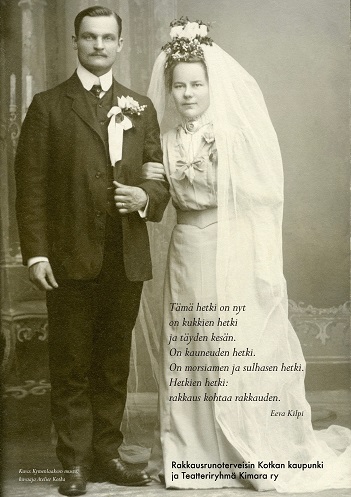 Tämä hetki on nyt
on kukkien hetki
ja täyden kesän.
On kauneuden hetki.
On morsiamen ja sulhasen hetki.
Hetkien hetki:
rakkaus kohtaa rakkauden.
Eeva Kilpi
Rakkausrunoterveisin Kotkan kaupunki
ja Teatteriryhmä Kimara ry
Kuva: Kymenlaakson museo,
kuvaaja Atelier Kotka